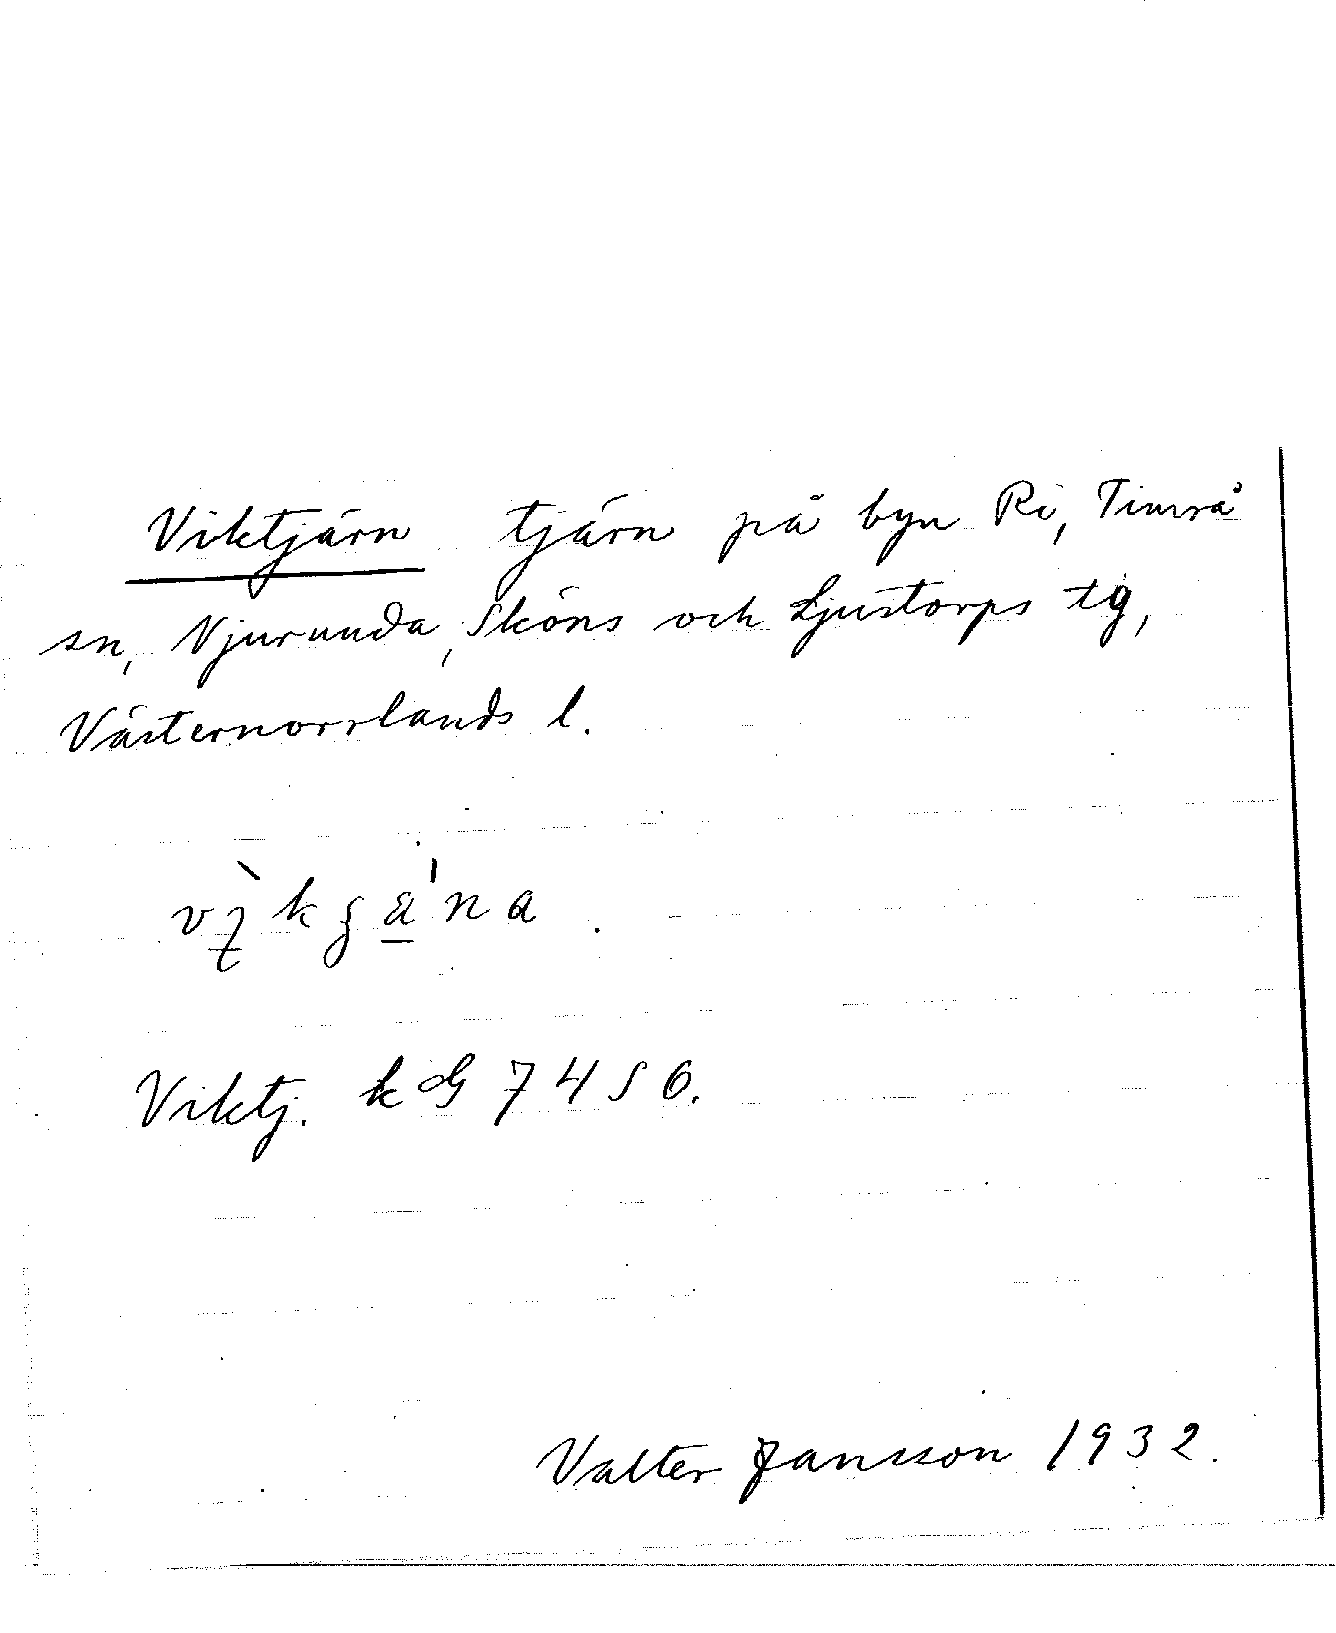 Viktjärn tjärn på byn Ri, Timrå
sn, Njurunda, Sköns och Ljustorps tg,
Västernorrlands l.
Viktj. k dG 7450.
Valter Jansson 1932.